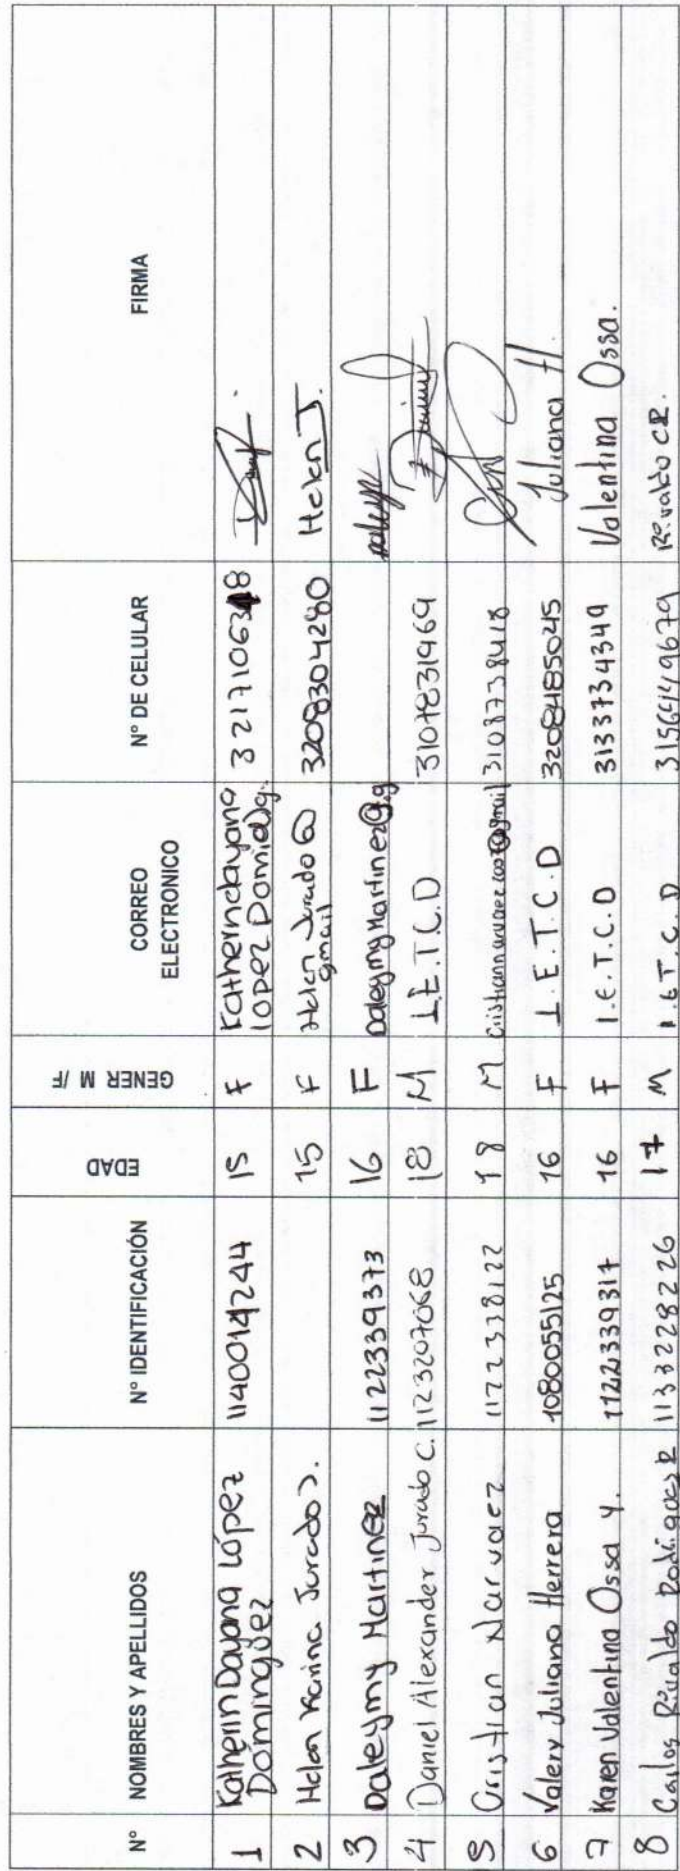 N° NOMBRES Y APELLIDOS N° IDENTIFICACIÓN EDAD GENER M /F CORREO ELECTRONICO N° DE CELULAR FIRMA
1 Katherin Dayana López Dominguez 1140014244 15 F Katherindayana lopez Domidg. 32171063
2 Helen Karina Jurado J. 15 F Helen Jurado @ gmail 3208304280 Helen J.
3 Daleymy Martinez 1122339373 16 F DaleymyMartinez@g.g Daleyn
4 Daniel Alexander Jurado C. 1123207068 18 M I.E.T.C.D 3107831969 Daniel
5 Cristian Narvaez 1122338122 18 M 3108738418
6 Valery Juliana Herrera 1080055125 16 F I.E.T.C.D 3208485045 Juliana H.
7 Karen Valentina Ossa Y. 1122339317 16 F I.E.T.C.D 3133734349 Valentina Ossa.
8 Carlos Rivaldo Rodriguez R 1133228226 17 M I.E.T.C.D 3156449679 Rivaldo CR.